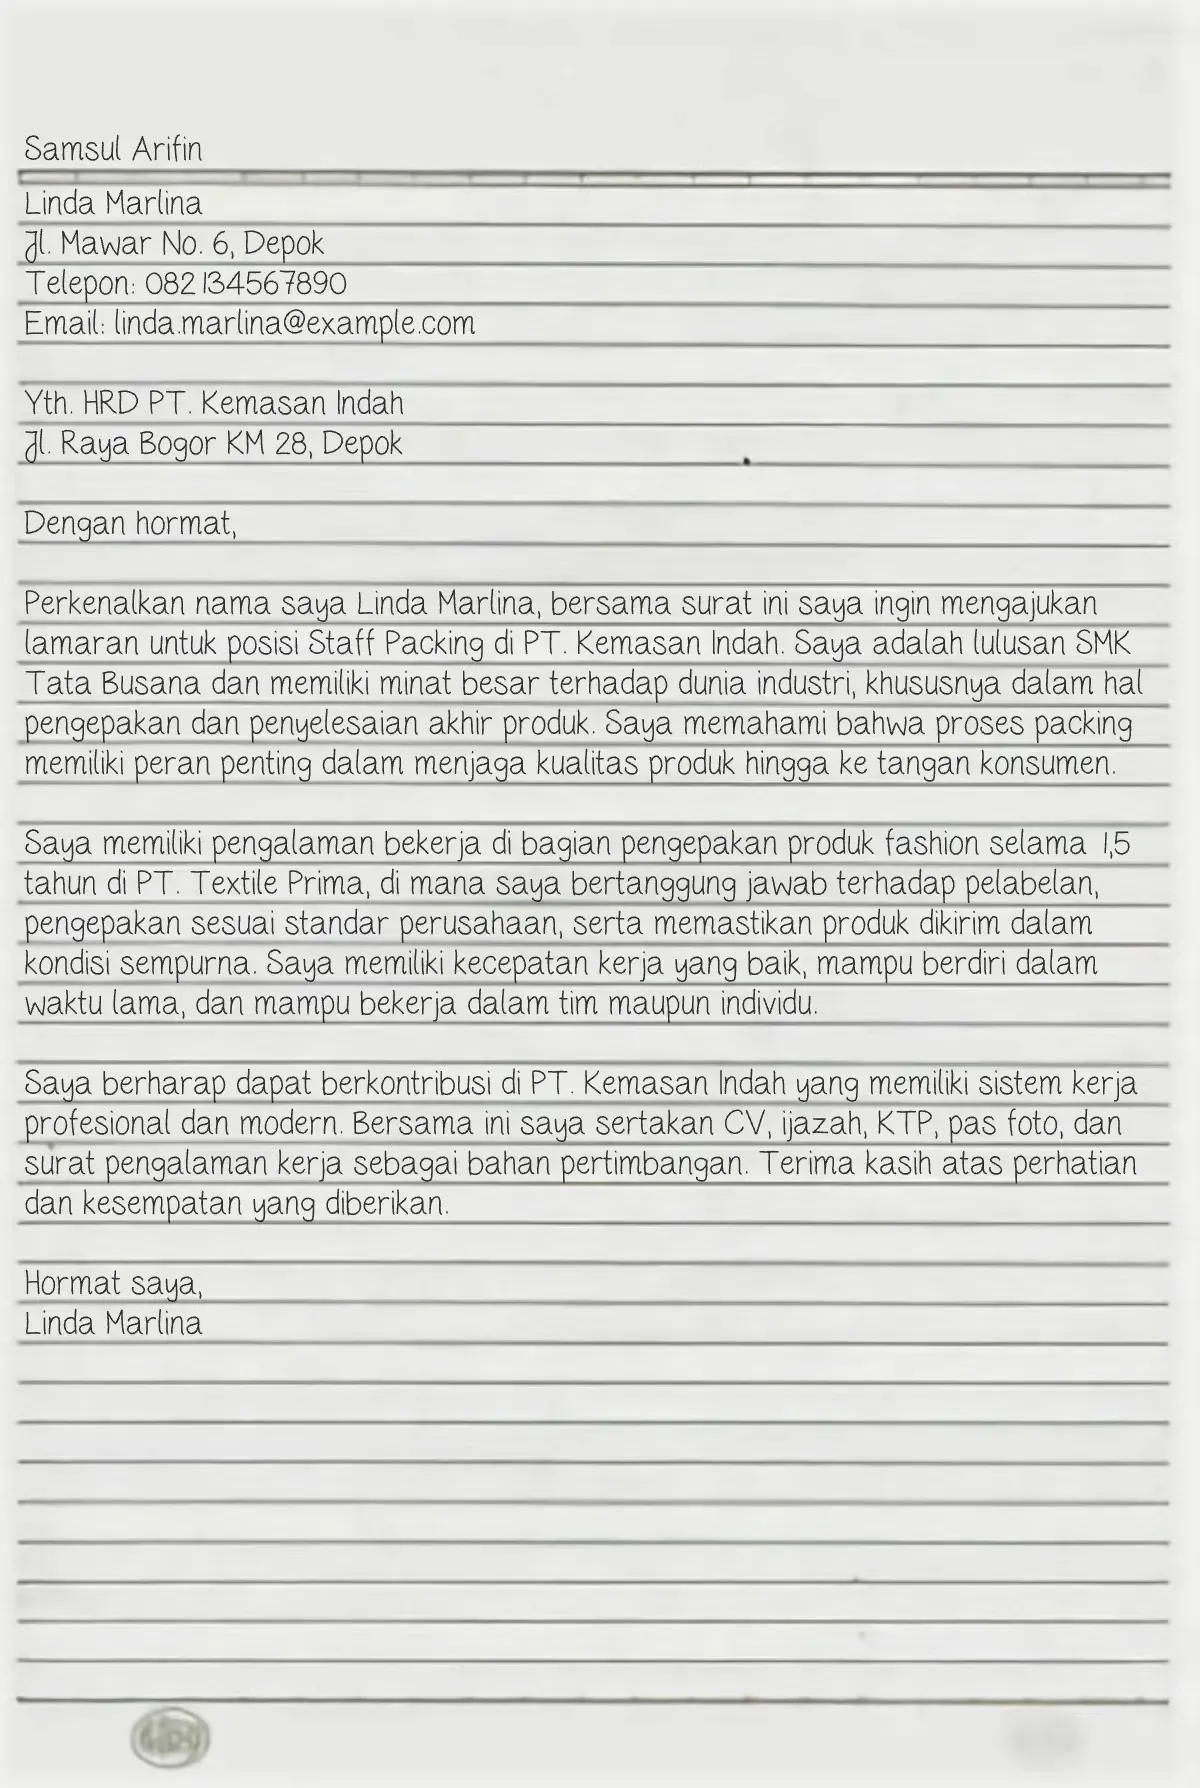 Samsul Arifin
Linda Marlina
Jl. Mawar No. 6, Depok
Telepon: 082134567890
Email: linda.marlina@example.com
Yth. HRD PT. Kemasan Indah
Jl. Raya Bogor KM 28, Depok
Dengan hormat,
Perkenalkan nama saya Linda Marlina, bersama surat ini saya ingin mengajukan
lamaran untuk posisi Staff Packing di PT. Kemasan Indah. Saya adalah lulusan SMK
Tata Busana dan memiliki minat besar terhadap dunia industri, khususnya dalam hal
pengepakan dan penyelesaian akhir produk. Saya memahami bahwa proses packing
memiliki peran penting dalam menjaga kualitas produk hingga ke tangan konsumen.
Saya memiliki pengalaman bekerja di bagian pengepakan produk fashion selama 1,5
tahun di PT. Textile Prima, di mana saya bertanggung jawab terhadap pelabelan,
pengepakan sesuai standar perusahaan, serta memastikan produk dikirim dalam
kondisi sempurna. Saya memiliki kecepatan kerja yang baik, mampu berdiri dalam
waktu lama, dan mampu bekerja dalam tim maupun individu.
Saya berharap dapat berkontribusi di PT. Kemasan Indah yang memiliki sistem kerja
profesional dan modern. Bersama ini saya sertakan CV, ijazah, KTP, pas foto, dan
surat pengalaman kerja sebagai bahan pertimbangan. Terima kasih atas perhatian
dan kesempatan yang diberikan.
Hormat saya,
Linda Marlina